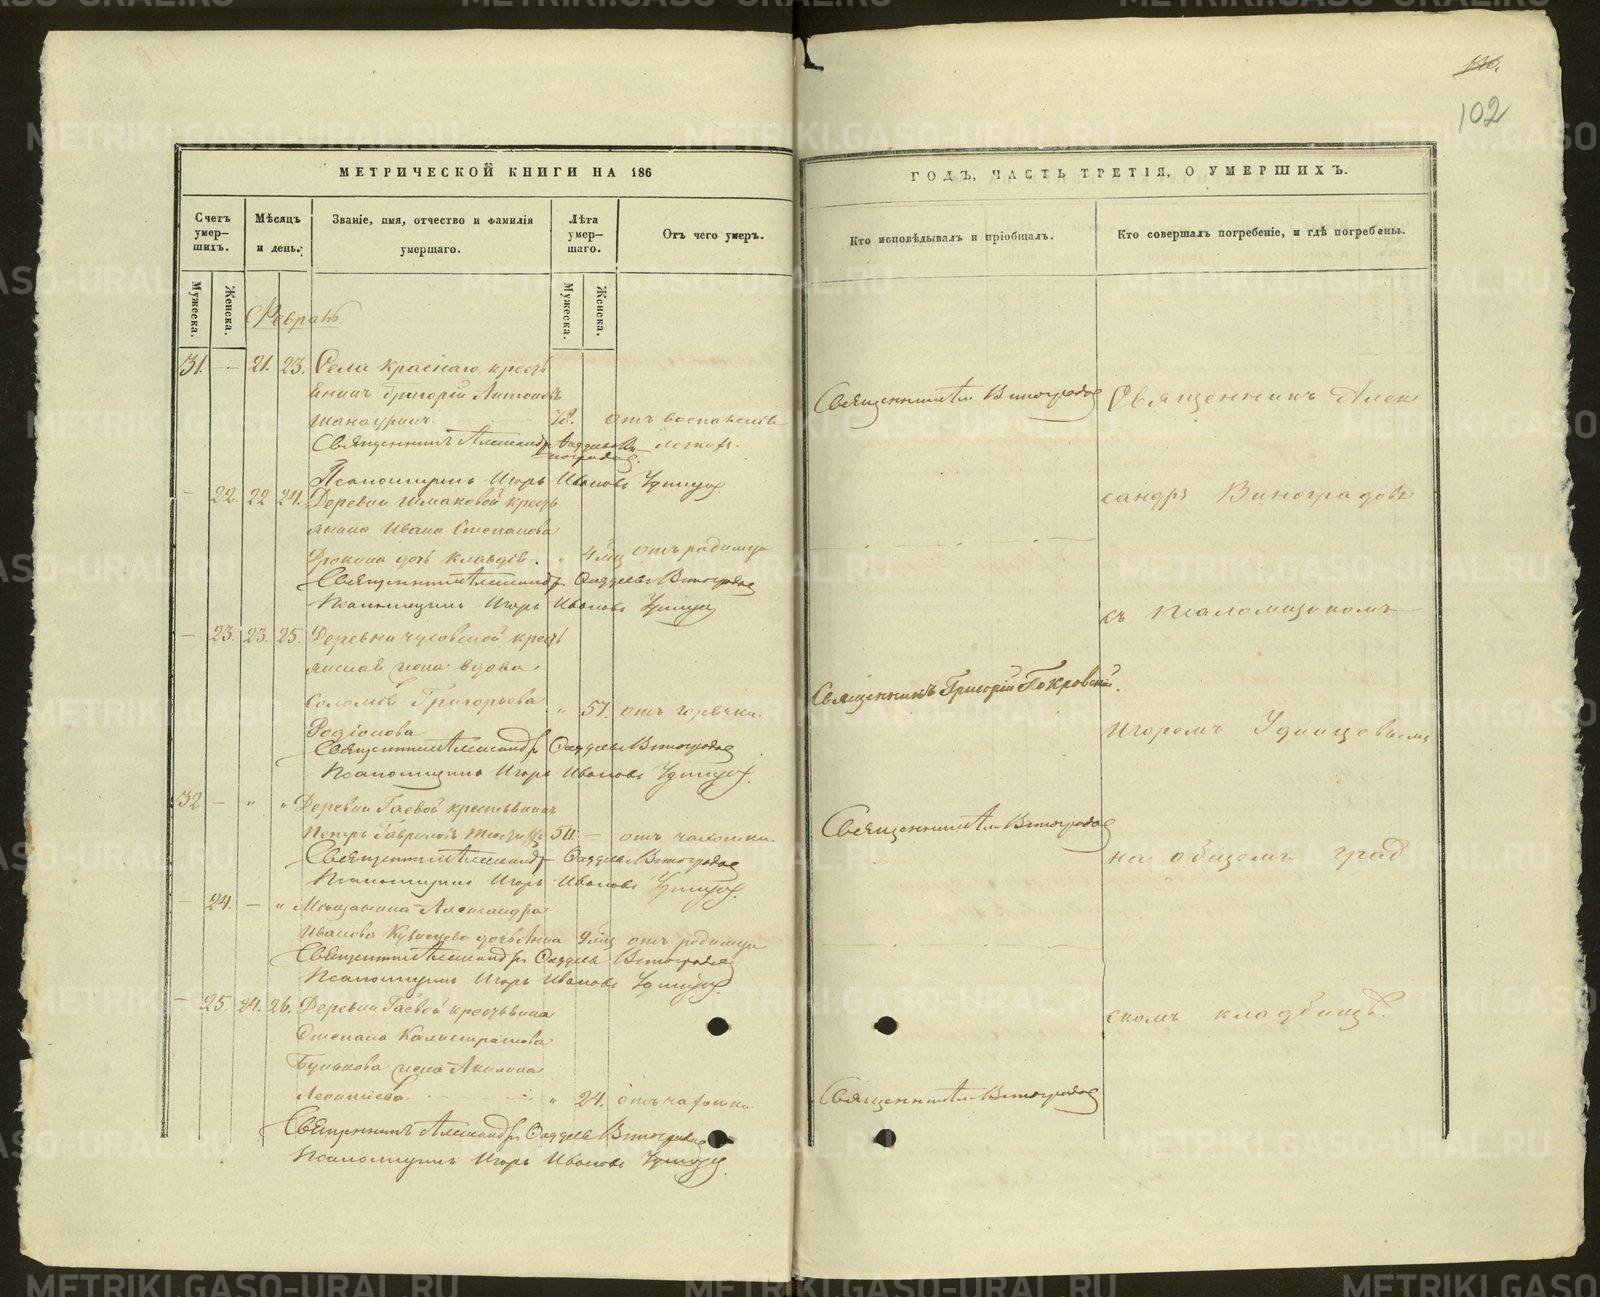 102
МЕТРИЧЕСКОЙ КНИГИ НА 186
ГОДЪ, ЧАСТЬ ТРЕТІЯ, О УМЕРШИХЪ.
Счетъ умер-шихъ.
Мѣсяцъ и день.
Званіе, имя, отчество и фамилія умершаго.
Лѣта умер-шаго.
Отъ чего умеръ.
Кто исповѣдывалъ и пріобщалъ.
Кто совершалъ погребеніе, и гдѣ погребены.
Мужеска.
Женска.
Мужеска.
Женска.
Февраль
31. 21. 23. Села Краснаго крест
янинъ Григорій Антоновъ
отъ воспаленія
Священникъ Александръ Фаддеевъ Виноградовъ
легкихъ
Псаломщикъ Игорь Ивановъ Удинцовъ
22. 22 24. Деревни Шмаковой крест
янина Ивана Степанова
дочь Клавдія 4 мц отъ родимца
Священникъ Александръ Фаддеевъ Виноградовъ
Псаломщикъ Игорь Ивановъ Удинцовъ
23. 23. 25. Деревни Чусовской крест
жена вдова
Соломія Григорьева
Родіонова
" 57. отъ горячки.
Священникъ Александръ Фаддеевъ Виноградовъ
Псаломщикъ Игорь Ивановъ Удинцовъ
32 - " " Деревни Гаевой крестьянинъ
Петръ Гавриловъ 50 - отъ чахотки.
Священникъ Александръ Фаддеевъ Виноградовъ
Псаломщикъ Игорь Ивановъ Удинцовъ
24. - " Мѣщанина Александра
Иванова дочь Анна 9 мц отъ родимца
Священникъ Александръ Фаддеевъ Виноградовъ
Псаломщикъ Игорь Ивановъ Удинцовъ
25. 24. 26. Деревни Гаевой крестьянина
Степана Калистратова
Бунькова жена Акилина
Леонтіева " 24. отъ чахотки
Священникъ Александръ Фаддеевъ Виноградовъ
Псаломщикъ Игорь Ивановъ Удинцовъ
Священникъ Ал. Виноградовъ
Священникъ Григорій Покровскій.
Священникъ Ал. Виноградовъ
Священникъ Ал. Виноградовъ
Священникъ Алек
сандръ Виноградовъ
съ псаломщикомъ
Игоремъ Удинцевымъ
на общемъ град
скомъ кладбищѣ.
METRIKI.GASO-URAL.RU